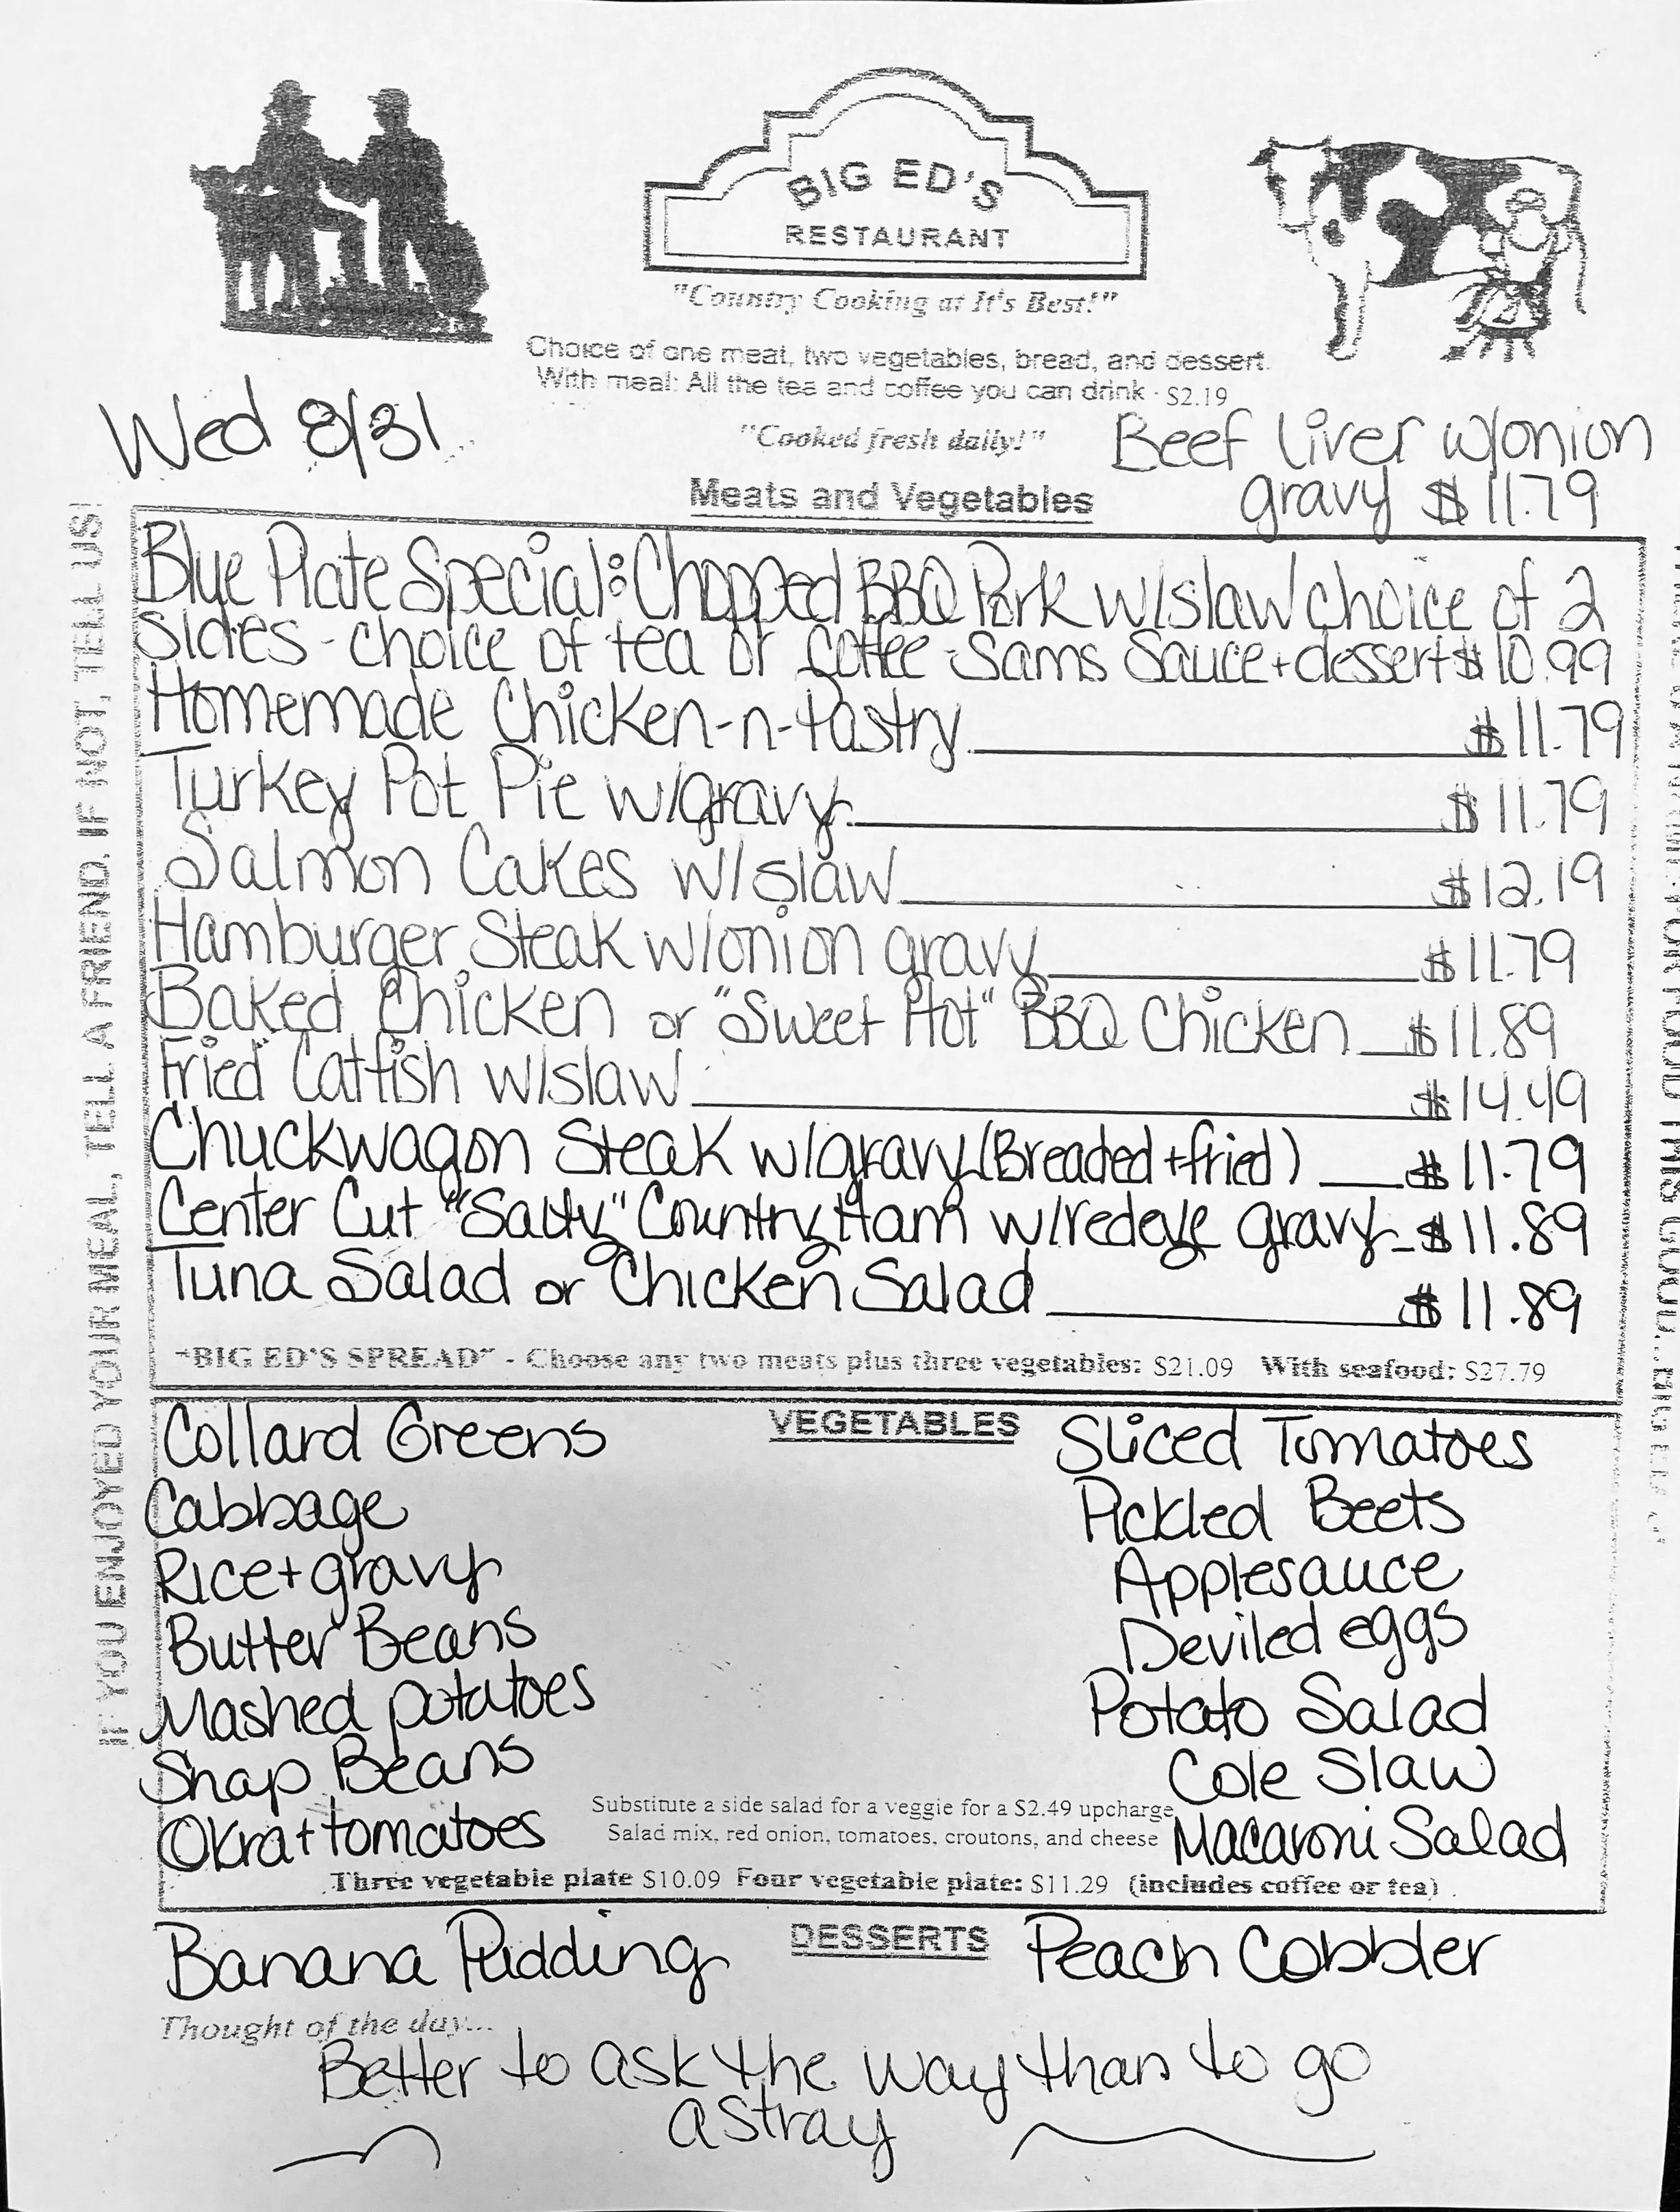 BIG ED'S
RESTAURANT
"Country Cooking at It's Best!"
Choice of one meat, two vegetables, bread, and dessert.
With meal: All the tea and coffee you can drink - $2.19
Wed 8/31
"Cooked fresh daily!"
Beef liver w/onion
gravy $11.79
Meats and Vegetables
Blue Plate Special: Chopped BBQ Pork w/slaw choice of 2
Sides - choice of tea or coffee - Sams Sauce + dessert $10.99
Homemade Chicken-n-Pastry $11.79
Turkey Pot Pie w/gravy $11.79
Salmon Cakes w/slaw $12.19
Hamburger Steak w/onion gravy $11.79
Baked Chicken or "Sweet Hot" BBQ Chicken $11.89
Fried Catfish w/slaw $14.49
Chuckwagon Steak w/gravy (Breaded + fried) $11.79
Center Cut "Salty" Country Ham w/redeye gravy $11.89
Tuna Salad or Chicken Salad $11.89
"BIG ED'S SPREAD" - Choose any two meats plus three vegetables: $21.09 With seafood: $27.79
VEGETABLES
Collard Greens
Cabbage
Rice + gravy
Butter Beans
Mashed potatoes
Snap Beans
Okra + tomatoes
Sliced Tomatoes
Pickled Beets
Applesauce
Deviled eggs
Potato Salad
Cole Slaw
Macaroni Salad
Substitute a side salad for a veggie for a $2.49 upcharge
Salad mix, red onion, tomatoes, croutons, and cheese
Three vegetable plate $10.09 Four vegetable plate: $11.29 (includes coffee or tea)
DESSERTS
Banana Pudding
Peach Cobbler
Thought of the day...
Better to ask the way than to go
astray
IF YOU ENJOYED YOUR MEAL, TELL A FRIEND, IF NOT, TELL US!